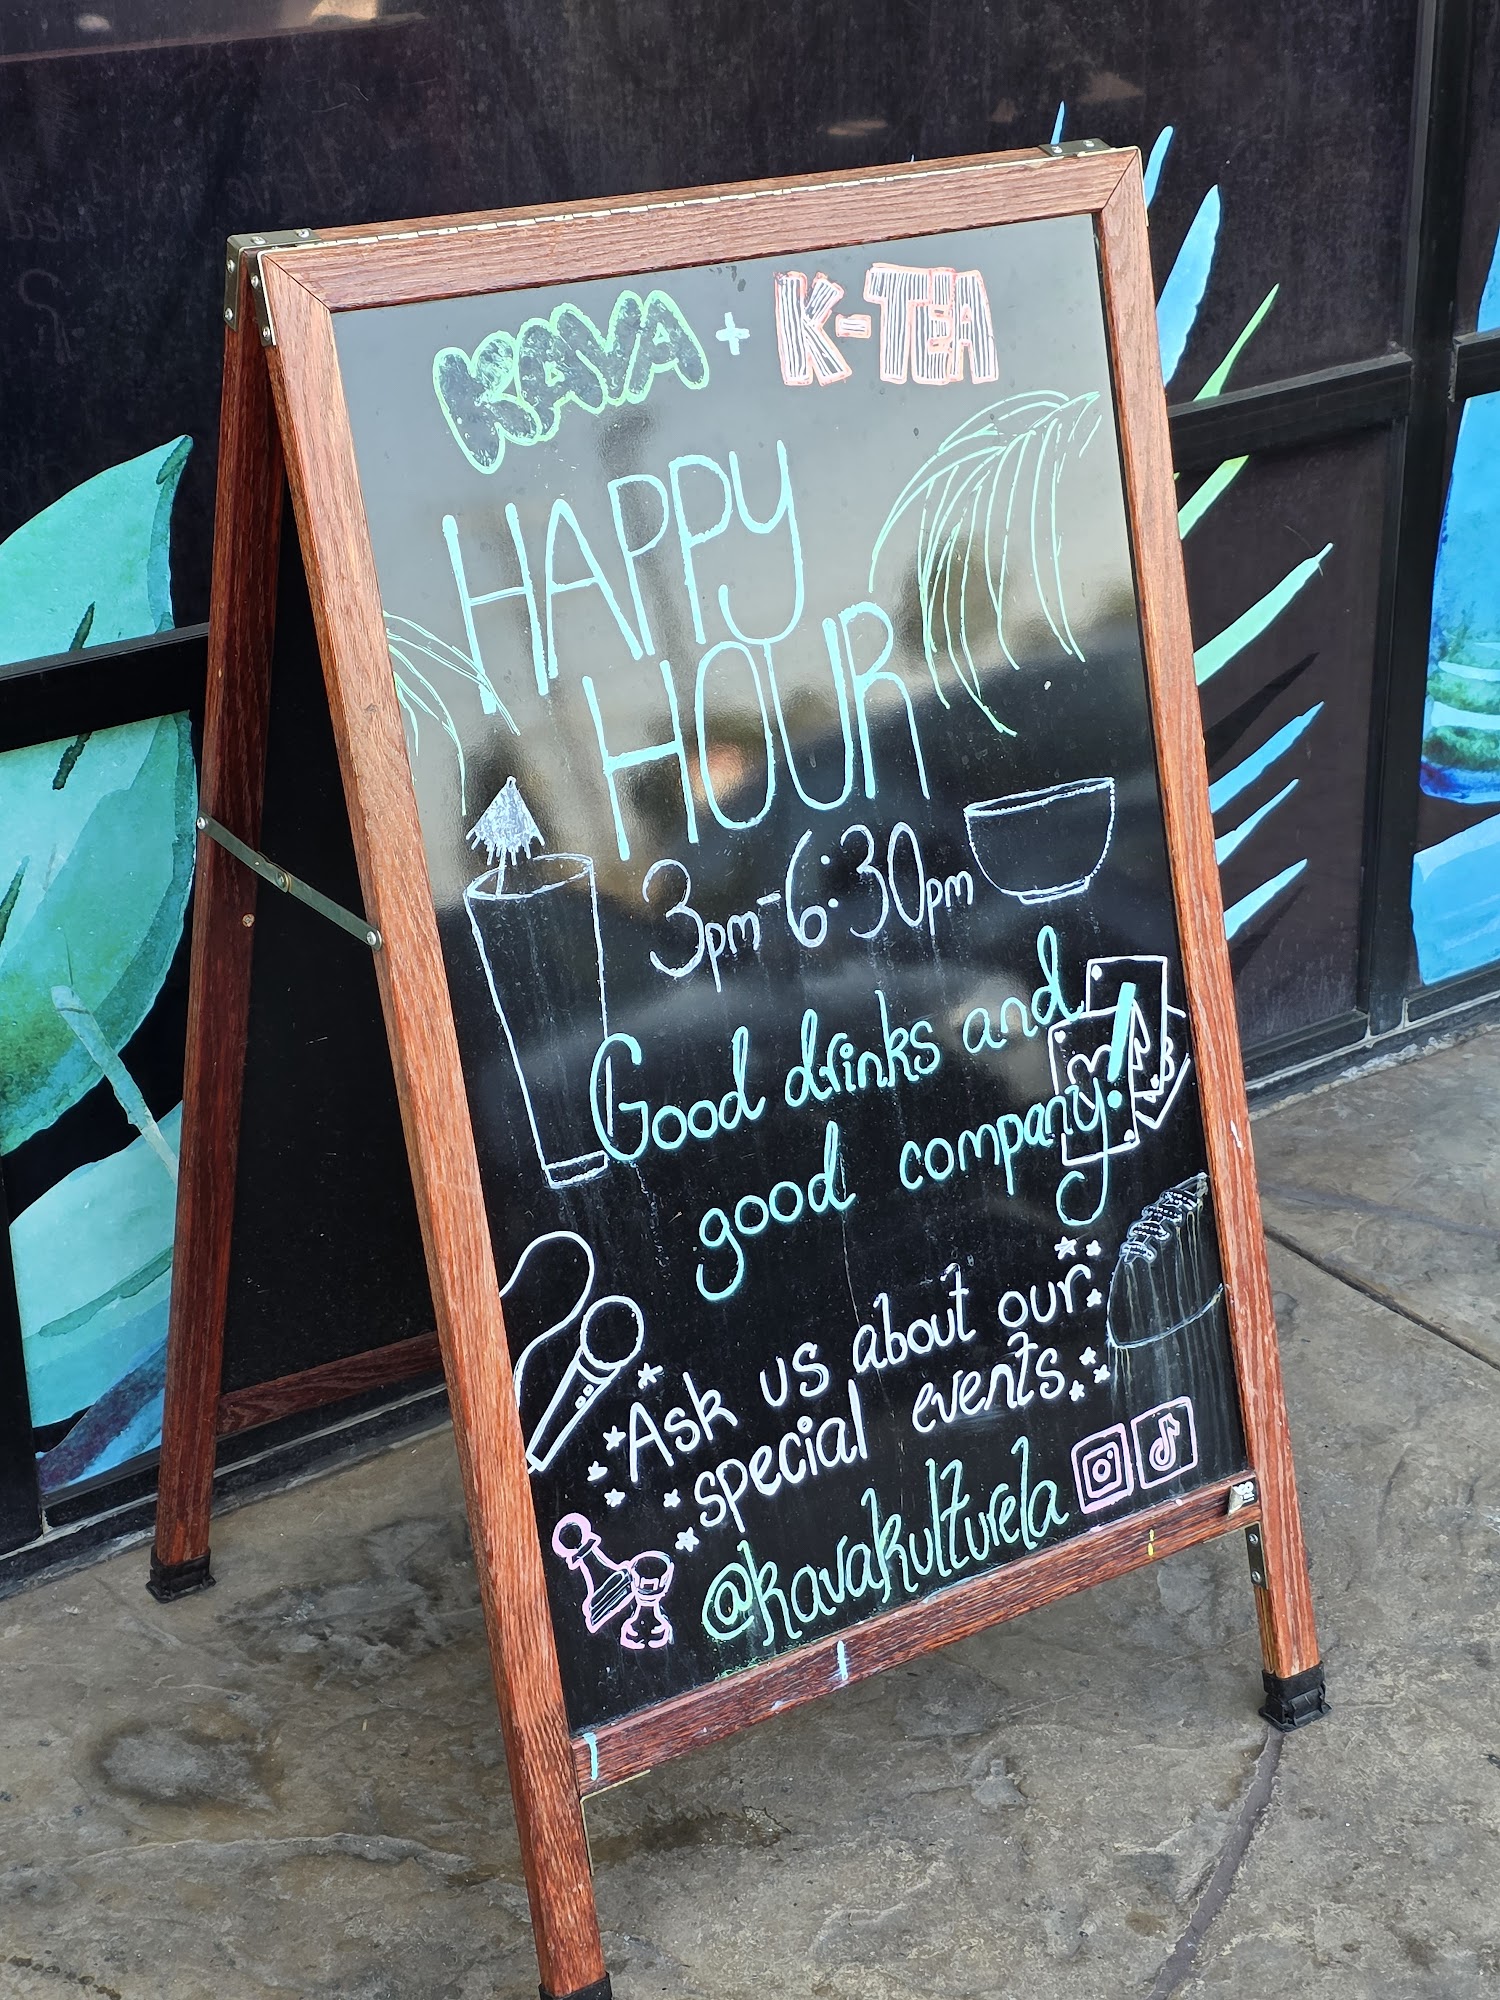 KAVA + K-TEA
HAPPY
HOUR
3pm-6:30pm
Good drinks and
good company!
Ask us about our
special events.
@kavakulturela